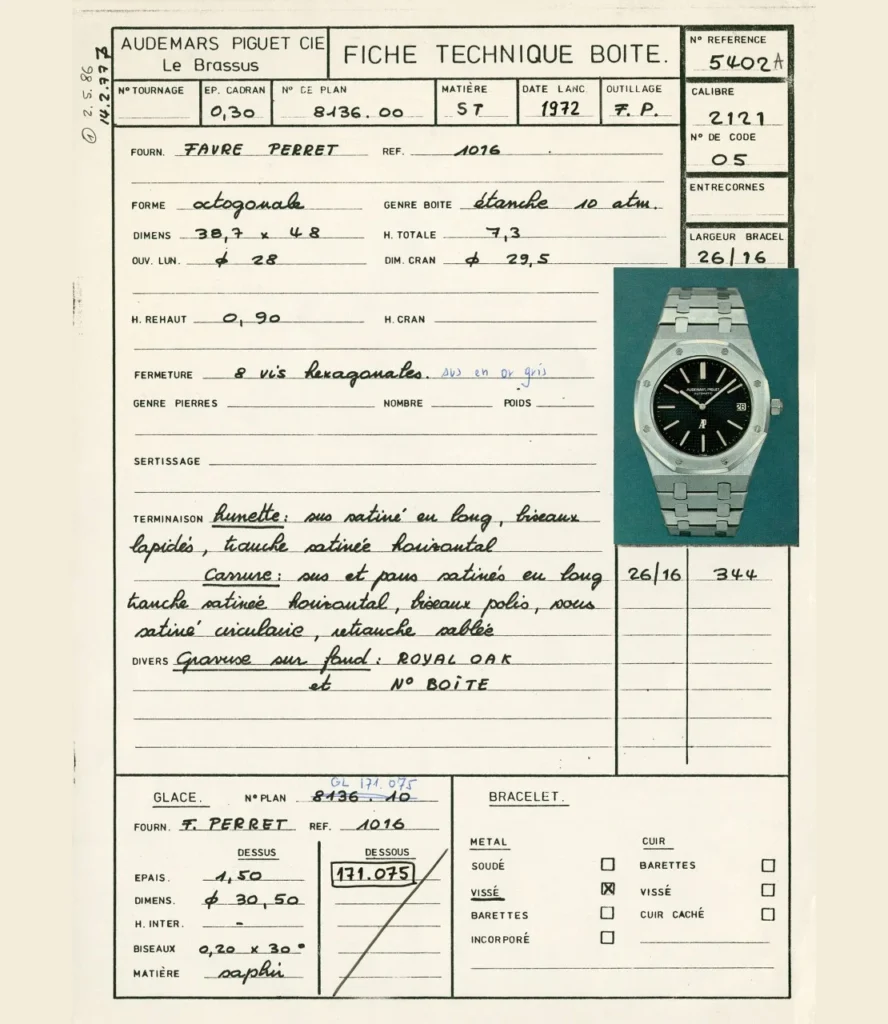 AUDEMARS PIGUET CIE
Le Brassus
FICHE TECHNIQUE BOITE.
N° REFERENCE
5402A
① 2.5.86
14.2.77
N° TOURNAGE
EP. CADRAN
0,30
N° DE PLAN
8136.00
MATIÈRE
ST
DATE LANC
1972
OUTILLAGE
F. P.
CALIBRE
2121
N° DE CODE
05
ENTRECORNES
LARGEUR BRACEL
26/16
FOURN. FAVRE PERRET REF. 1016
FORME octogonale GENRE BOITE étanche 10 atm.
DIMENS 38,7 x 48 H. TOTALE 7,3
OUV. LUN. ϕ 28 DIM. CRAN ϕ 29,5
H. REHAUT 0,90 H. CRAN
FERMETURE 8 vis hexagonales. sus en or gris
GENRE PIERRES NOMBRE POIDS
SERTISSAGE
AUDEMARS PIGUET
AUTOMATIC
AP
26
TERMINAISON Lunette: sus satiné en long, biseaux
lapidés, tranche satinée horizontal
Carrure: sus et pans satinés en long 26/16 344
tranche satinée horizontal, biseaux polis, sous
satiné circulaire, retranche sablée
DIVERS Gravure sur fond: ROYAL OAK
et N° BOÎTE
GL 171.075
GLACE. N° PLAN 8136.10
FOURN. F. PERRET REF. 1016
DESSUS DESSOUS
EPAIS. 1,50 171.075
DIMENS. ϕ 30,50
H. INTER. -
BISEAUX 0,20 x 30°
MATIÈRE saphir
BRACELET.
METAL CUIR
SOUDÉ ☐ BARETTES ☐
VISSÉ ☒ VISSÉ ☐
BARETTES ☐ CUIR CACHÉ ☐
INCORPORÉ ☐